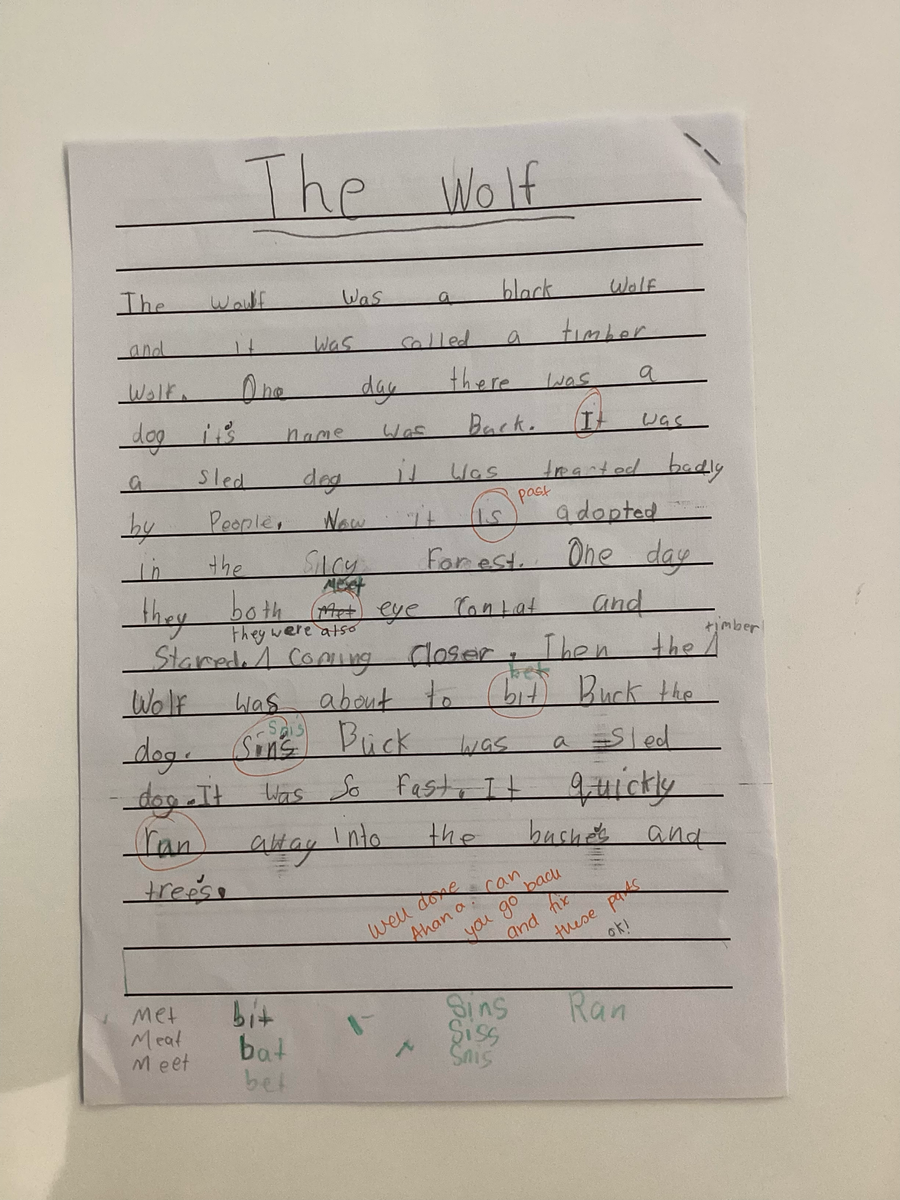 The Wolf
The woulf was a black Wolf
and it was called a timber
Wolf. One day there was a
dog it's name was Back. It was
a sled dog it was treated badly
past
by People. Now it is adopted
in the Silcy Forest. One day
Meet
they both Met eye contat and
they were also
timber
Stared. ^ Coming closer. Then the ^
bet
Wolf was about to bit Buck the
Snis
dog. Sins Buck was a sled
dog. It was So fast. It quickly
ran away into the bushe's and
tree's.
Well done
Ahana! can
you go back
and fix
these parts
ok!
Met bit Sins Ran
Meat bat Siss
Meet bet Snis